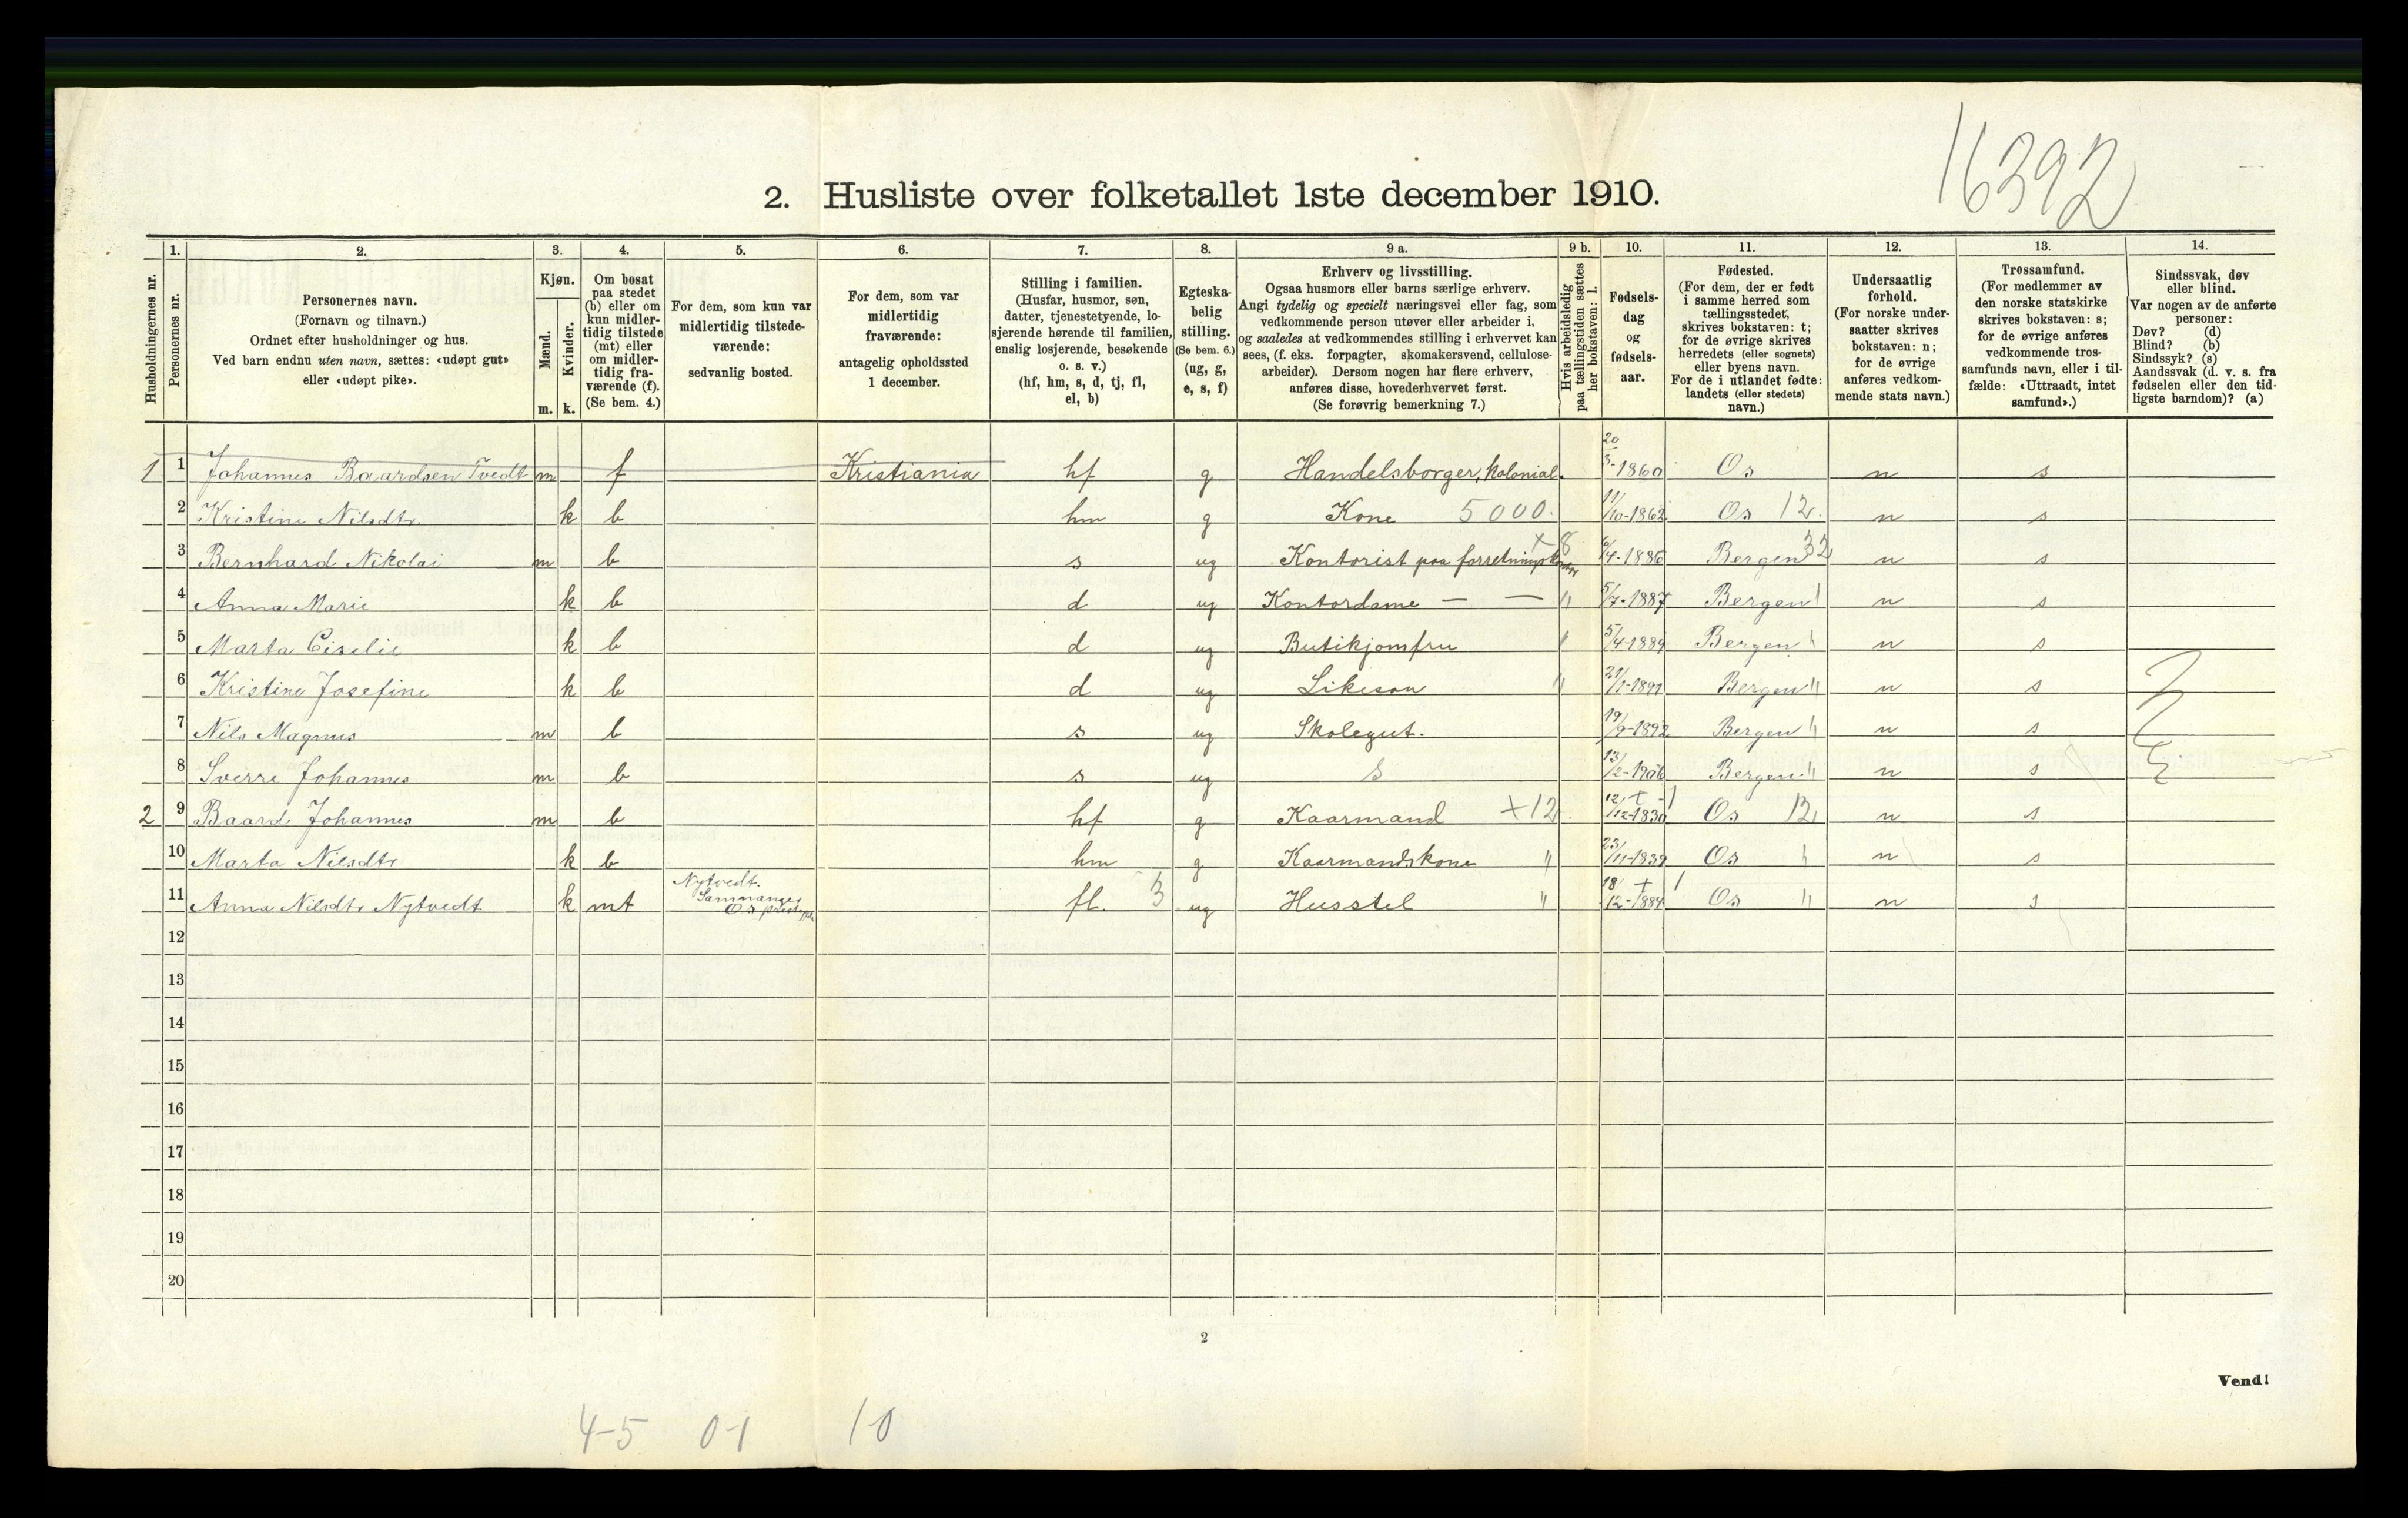 16392
2. Husliste over folketallet 1ste december 1910.
1. 2. 3. 4. 5. 6. 7. 8. 9 a. 9 b. 10. 11. 12. 13. 14.
Husholdningernes nr.
Personernes nr.
Personernes navn.
(Fornavn og tilnavn.)
Ordnet efter husholdninger og hus.
Ved barn endnu uten navn, sættes: «udøpt gut»
eller «udøpt pike».
Kjøn.
Mænd.
Kvinder.
m. k.
Om bosat
paa stedet
(b) eller om
kun midler-
tidig tilstede
(mt) eller
om midler-
tidig fra-
værende (f).
(Se bem. 4.)
For dem, som kun var
midlertidig tilstede-
værende:
sedvanlig bosted.
For dem, som var
midlertidig
fraværende:
antagelig opholdssted
1 december.
Stilling i familien.
(Husfar, husmor, søn,
datter, tjenestetyende, lo-
sjerende hørende til familien,
enslig losjerende, besøkende
o. s. v.)
(hf, hm, s, d, tj, fl,
el, b)
Egteska-
belig
stilling.
(Se bem. 6.)
(ug, g,
e, s, f)
Erhverv og livsstilling.
Ogsaa husmors eller barns særlige erhverv.
Angi tydelig og specielt næringsvei eller fag, som
vedkommende person utøver eller arbeider i,
og saaledes at vedkommendes stilling i erhvervet kan
sees, (f. eks. forpagter, skomakersvend, cellulose-
arbeider). Dersom nogen har flere erhverv,
anføres disse, hovederhvervet først.
(Se forøvrig bemerkning 7.)
Hvis arbeidsledig
paa tællingstiden sættes
her bokstaven: l.
Fødsels-
dag
og
fødsels-
aar.
Fødested.
(For dem, der er født
i samme herred som
tællingsstedet,
skrives bokstaven: t;
for de øvrige skrives
herredets (eller sognets)
eller byens navn.
For de i utlandet fødte:
landets (eller stedets)
navn.)
Undersaatlig
forhold.
(For norske under-
saatter skrives
bokstaven: n;
for de øvrige
anføres vedkom-
mende stats navn.)
Trossamfund.
(For medlemmer av
den norske statskirke
skrives bokstaven: s;
for de øvrige anføres
vedkommende tros-
samfunds navn, eller i til-
fælde: «Uttraadt, intet
samfund».)
Sindssvak, døv
eller blind.
Var nogen av de anførte
personer:
Døv? (d)
Blind? (b)
Sindssyk? (s)
Aandssvak (d. v. s. fra
fødselen eller den tid-
ligste barndom)? (a)
1 1 Johannes Baardsen Tvedt m f Kristiania hf g Handelsborger, kolonial. 20/3-1860 Os n s
2 Kristine Nilsdtr. k b hm g Kone 5000. 11/10-1862 Os 12. n s
3 Bernhard Nikolai m b s ug Kontorist paa forretningskontor +8 6/4-1886 Bergen 32 n s
4 Anna Marie k b d ug Kontordame — — " 5/7-1887 Bergen n s
5 Marta Cisilie k b d ug Butikjomfru " 5/4-1889 Bergen " n s
6 Kristine Josefine k b d ug Likesaa " 21/1-1891 Bergen " n s
7 Nils Magnus m b s ug Skolegut. 19/9-1892 Bergen " n s
8 Sverre Johannes m b s ug S 13/2-1906 Bergen " n s
2 9 Baard Johannes m b hf g Kaarmand +12 12/12-1830 + -1 Os 12 n s
10 Marta Nilsdtr k b hm g Kaarmandskone " 23/11-1839 Os " n s
11 Anna Nilsdtr Nytvedt k mt Nytvedt. Samnanger Os fl. 3 ug Husstel " 18/12-1884 + 1 Os " n s
12
13
14
15
16
17
18
19
20
2
Vend!
4-5 0-1 1-0